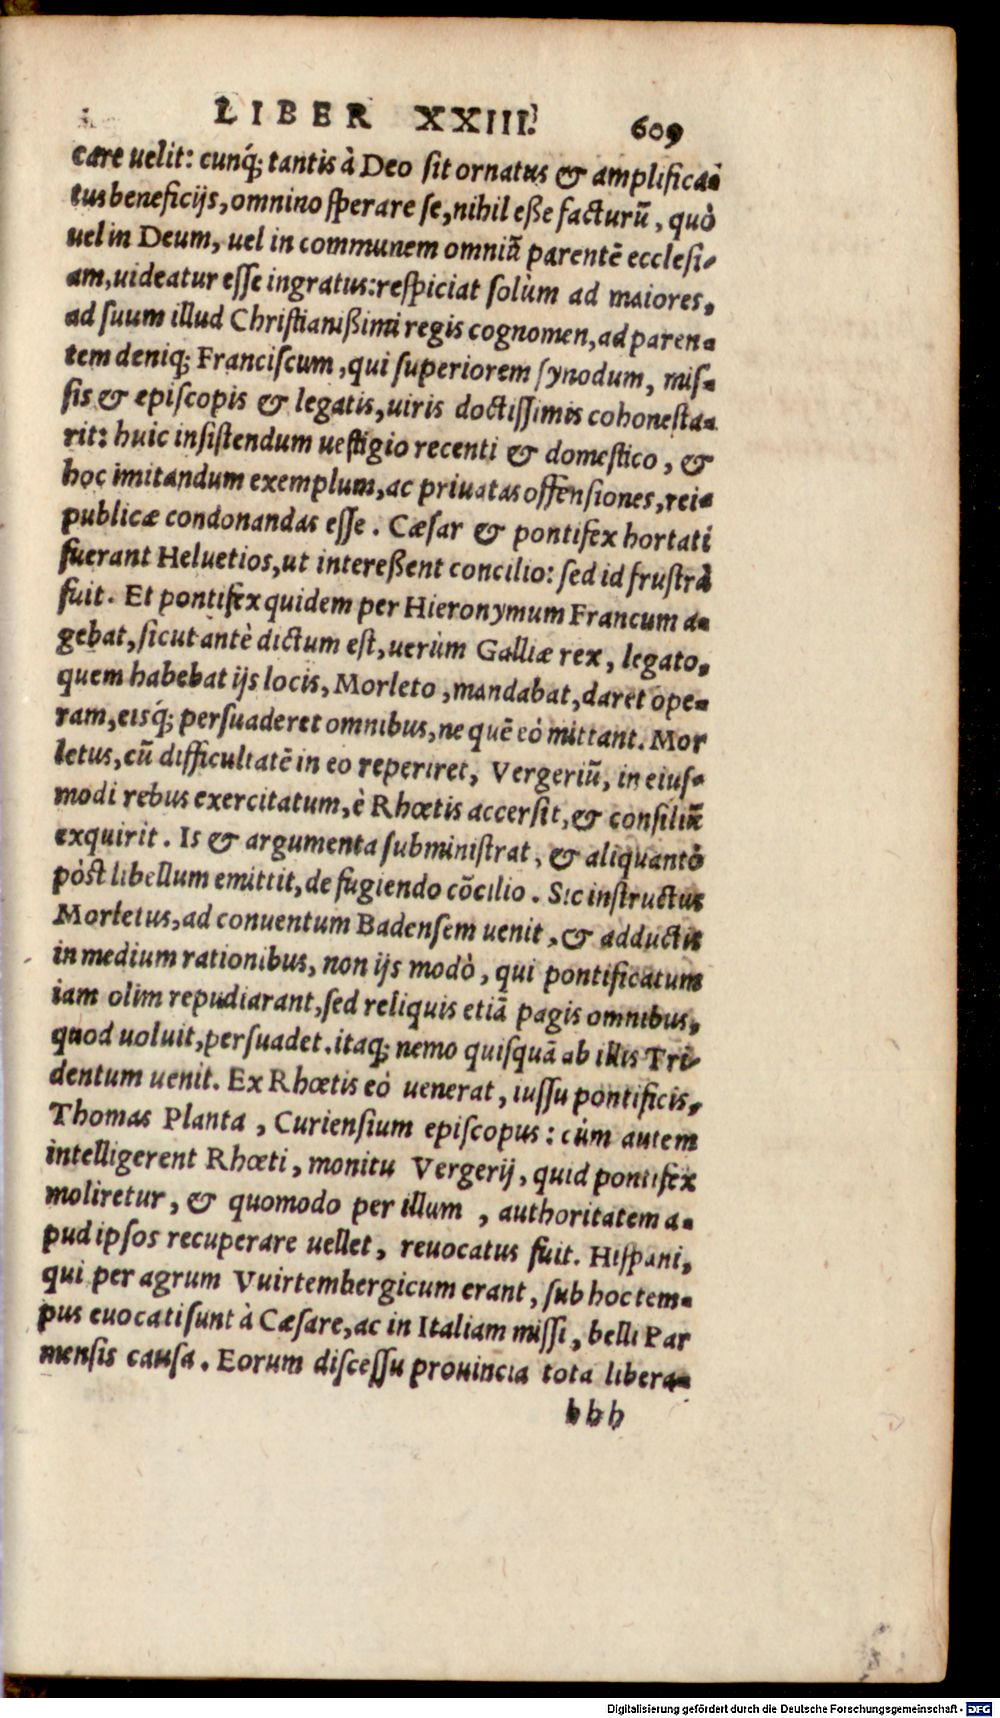 LIBER XXIII. 609
care uelit: cunq́; tantis à Deo sit ornatus & amplifica-
tus beneficijs, omnino sperare se, nihil eße facturũ, quò
uel in Deum, uel in communem omniũ parentẽ ecclesi-
am, uideatur esse ingratus: respiciat solùm ad maiores,
ad suum illud Christianißimi regis cognomen, ad paren-
tem deniq; Franciscum, qui superiorem synodum, mis-
sis & episcopis & legatis, uiris doctissimis cohonesta-
rit: huic insistendum uestigio recenti & domestico, &
hoc imitandum exemplum, ac priuatas offensiones, rei-
publicæ condonandas esse. Cæsar & pontifex hortati
fuerant Heluetios, ut intereßent concilio: sed id frustrà
fuit. Et pontifex quidem per Hieronymum Francum a-
gebat, sicut antè dictum est, uerùm Galliæ rex, legato,
quem habebat ijs locis, Morleto, mandabat, daret ope-
ram, eisq́; persuaderet omnibus, ne quẽ eò mittant. Mor
letus, cũ difficultatẽ in eo reperiret, Vergeriũ, in eius-
modi rebus exercitatum, è Rhœtis accersit, & consiliũ
exquirit. Is & argumenta subministrat, & aliquantò
pòst libellum emittit, de fugiendo cõcilio. Sic instructus
Morletus, ad conuentum Badensem uenit, & adductis
in medium rationibus, non ijs modò, qui pontificatum
iam olim repudiarant, sed reliquis etiã pagis omnibus,
quod uoluit, persuadet. itaq; nemo quisquã ab illis Tri-
dentum uenit. Ex Rhœtis eò uenerat, iussu pontificis,
Thomas Planta, Curiensium episcopus: cùm autem
intelligerent Rhœti, monitu Vergerij, quid pontifex
moliretur, & quomodo per illum, authoritatem a-
pud ipsos recuperare uellet, reuocatus fuit. Hispani,
qui per agrum Vuirtembergicum erant, sub hoc tem-
pus euocati sunt à Cæsare, ac in Italiam missi, belli Par
mensis causa. Eorum discessu prouincia tota libera-
bbb
Digitalisierung gefördert durch die Deutsche Forschungsgemeinschaft - DFG